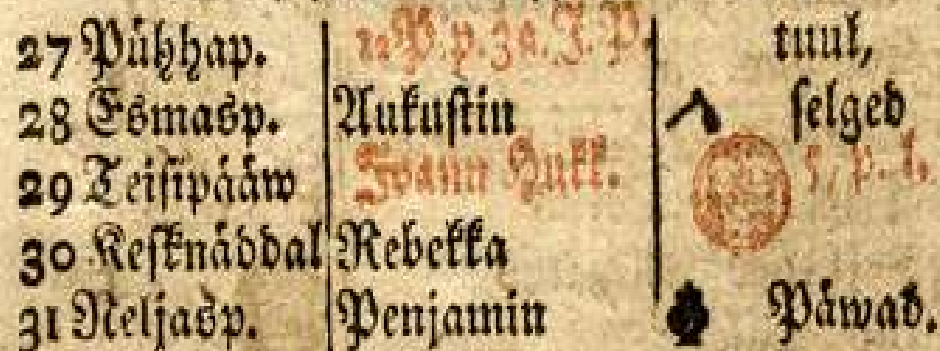 27 Pühhap. 12 P. p. 3a. J. P. tuul,
28 Esmasp. Aukustin selged
29 Teisipääw Joann Hukk. 5, p. l.
30 Kesknäddal Rebekka
31 Neljasp. Penjamin Päwad.